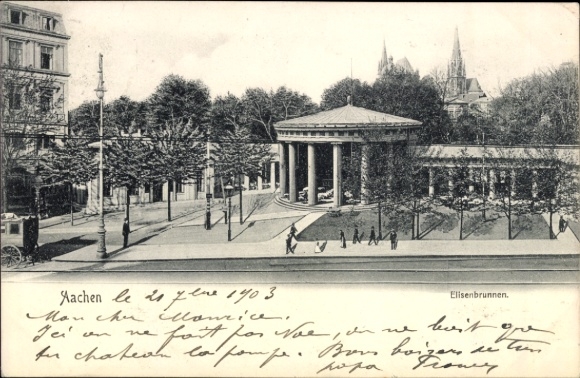 Aachen
Elisenbrunnen.
le 21 7bre 1903
Mon cher Maurice.
Ici on ne fait pas Noe, on ne boit que
du chateau la pompe. Bons baisers de ton
papa